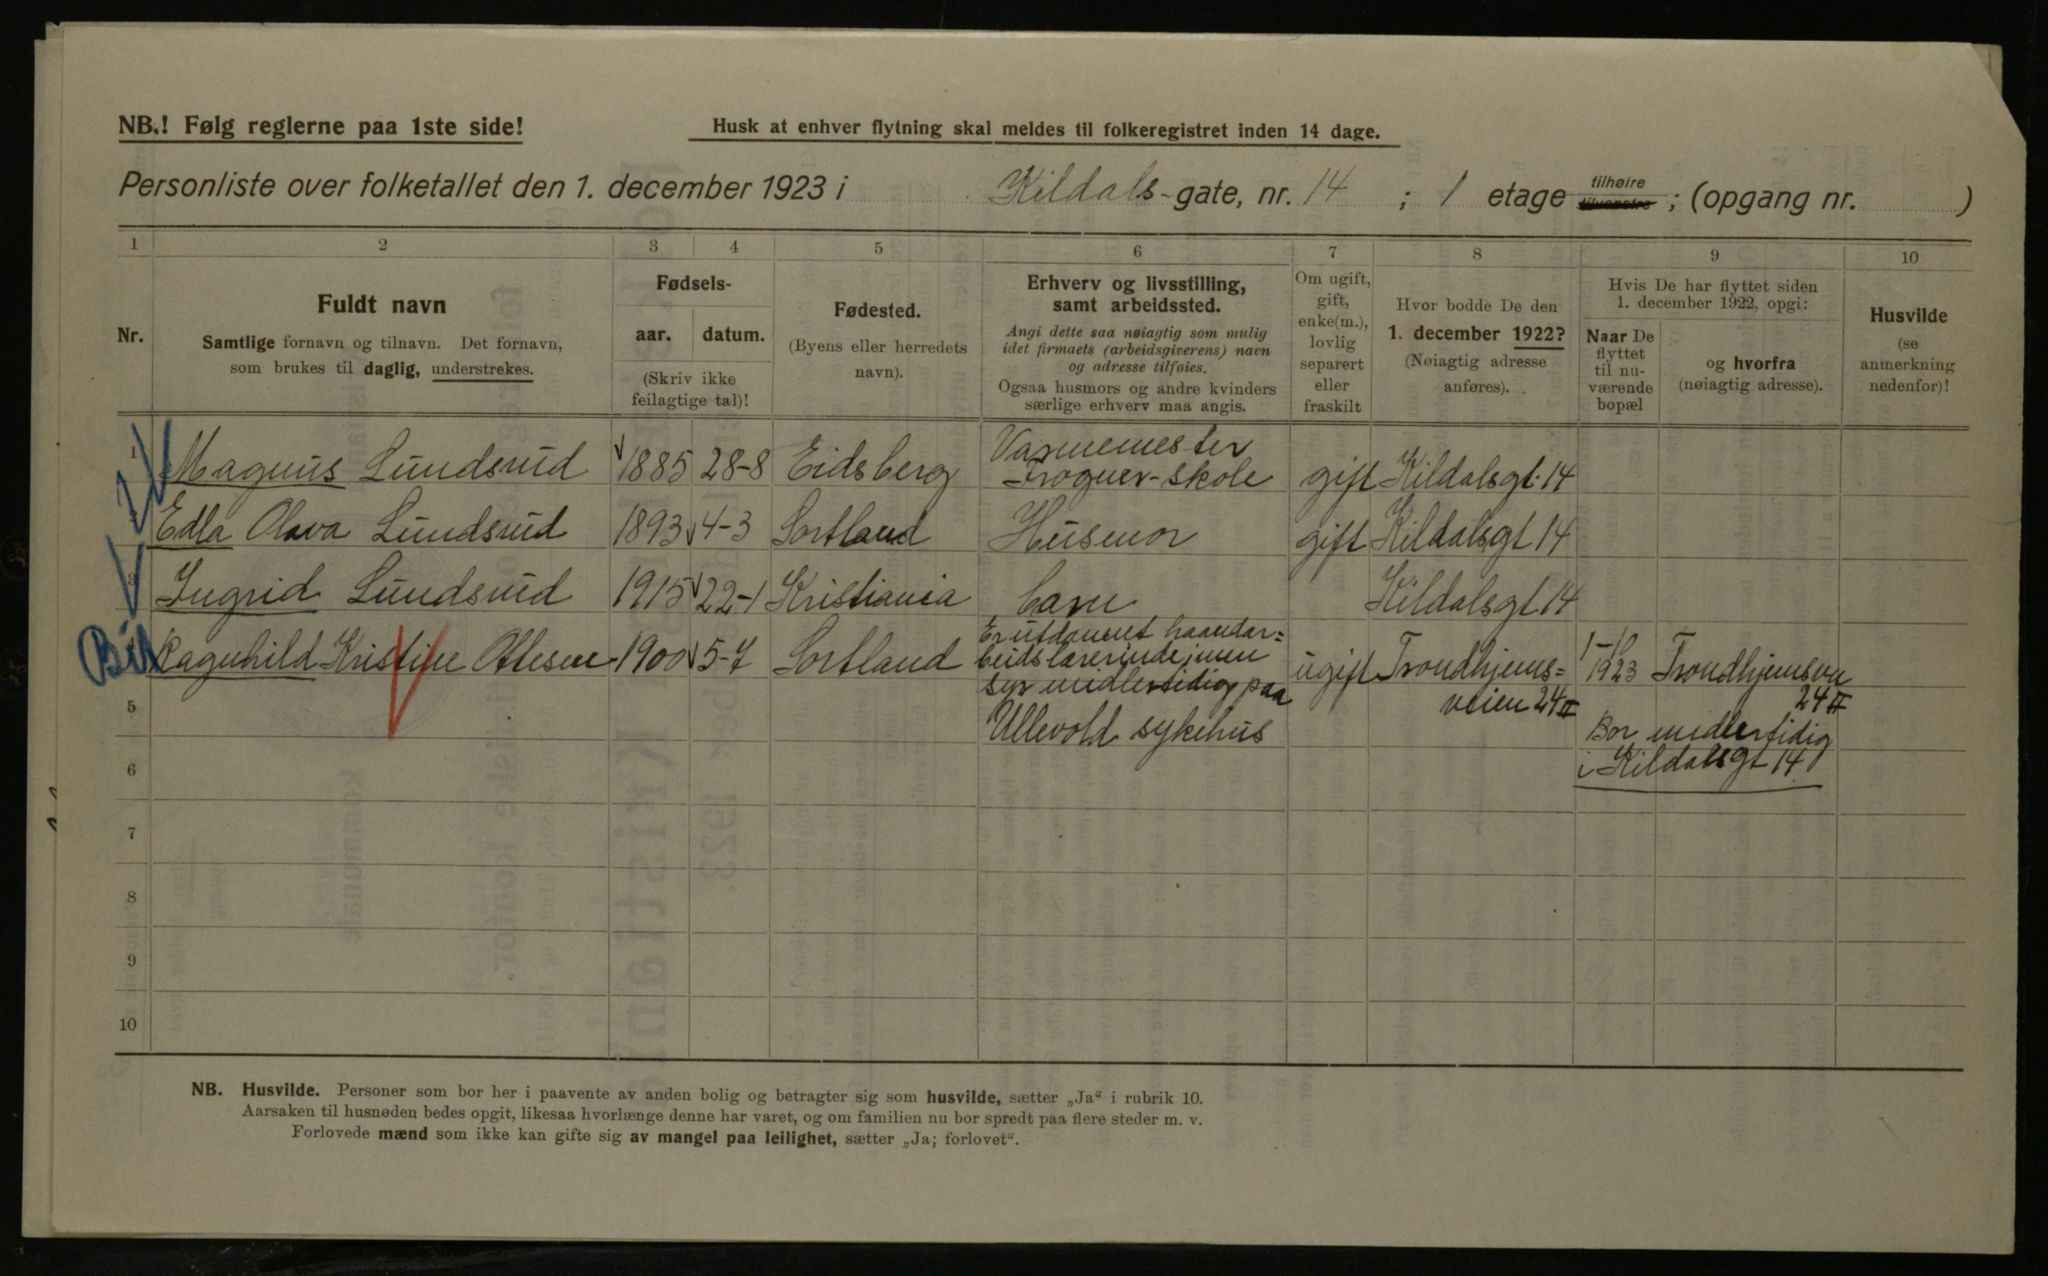 NB.! Følg reglerne paa 1ste side!
Husk at enhver flytning skal meldes til folkeregistret inden 14 dage.
Personliste over folketallet den 1. december 1923 i Kildals-gate, nr. 14 ; 1 etage tilhøire tilvenstre ; (opgang nr. )
1 2 3 4 5 6 7 8 9 10
Nr.
Fuldt navn
Samtlige fornavn og tilnavn. Det fornavn,
som brukes til daglig, understrekes.
Fødsels-
aar. datum.
(Skriv ikke
feilagtige tal)!
Fødested.
(Byens eller herredets
navn).
Erhverv og livsstilling,
samt arbeidssted.
Angi dette saa nøiagtig som mulig
idet firmaets (arbeidsgiverens) navn
og adresse tilføies.
Ogsaa husmors og andre kvinders
særlige erhverv maa angis.
Om ugift,
gift,
enke(m.),
lovlig
separert
eller
fraskilt
Hvor bodde De den
1. december 1922?
(Nøiagtig adresse
anføres).
Hvis De har flyttet siden
1. december 1922, opgi:
Naar De
flyttet
til nu-
værende
bopæl
og hvorfra
(nøiagtig adresse).
Husvilde
(se
anmerkning
nedenfor)!
1 Magnus Lundsrud 1885 28-8 Eidsberg Varmemester
Frogner-skole gift Kildalsgt. 14
Edla Olava Lundsrud 1893 4-3 Sortland Husmor gift Kildalsgt 14
3 Ingrid Lundsrud 1915 22-1 Kristiania barn Kildalsgt 14
Ragnhild Kristine Ottesen 1900 5-7 Sortland Er utdannet haandar=
beidslærerinde, men
syr medlertidig paa
Ullevold sykehus
ugift Trondhjems=
veien 24 II
1-10
1923 Trondhjemsvn
24 II
Bor midlertidig
i Kildalsgt 14
5
6
7
8
9
10
NB. Husvilde. Personer som bor her i paavente av anden bolig og betragter sig som husvilde, sætter „Ja“ i rubrik 10.
Aarsaken til husnøden bedes opgit, likesaa hvorlænge denne har varet, og om familien nu bor spredt paa flere steder m. v.
Forlovede mænd som ikke kan gifte sig av mangel paa leilighet, sætter „Ja; forlovet“.